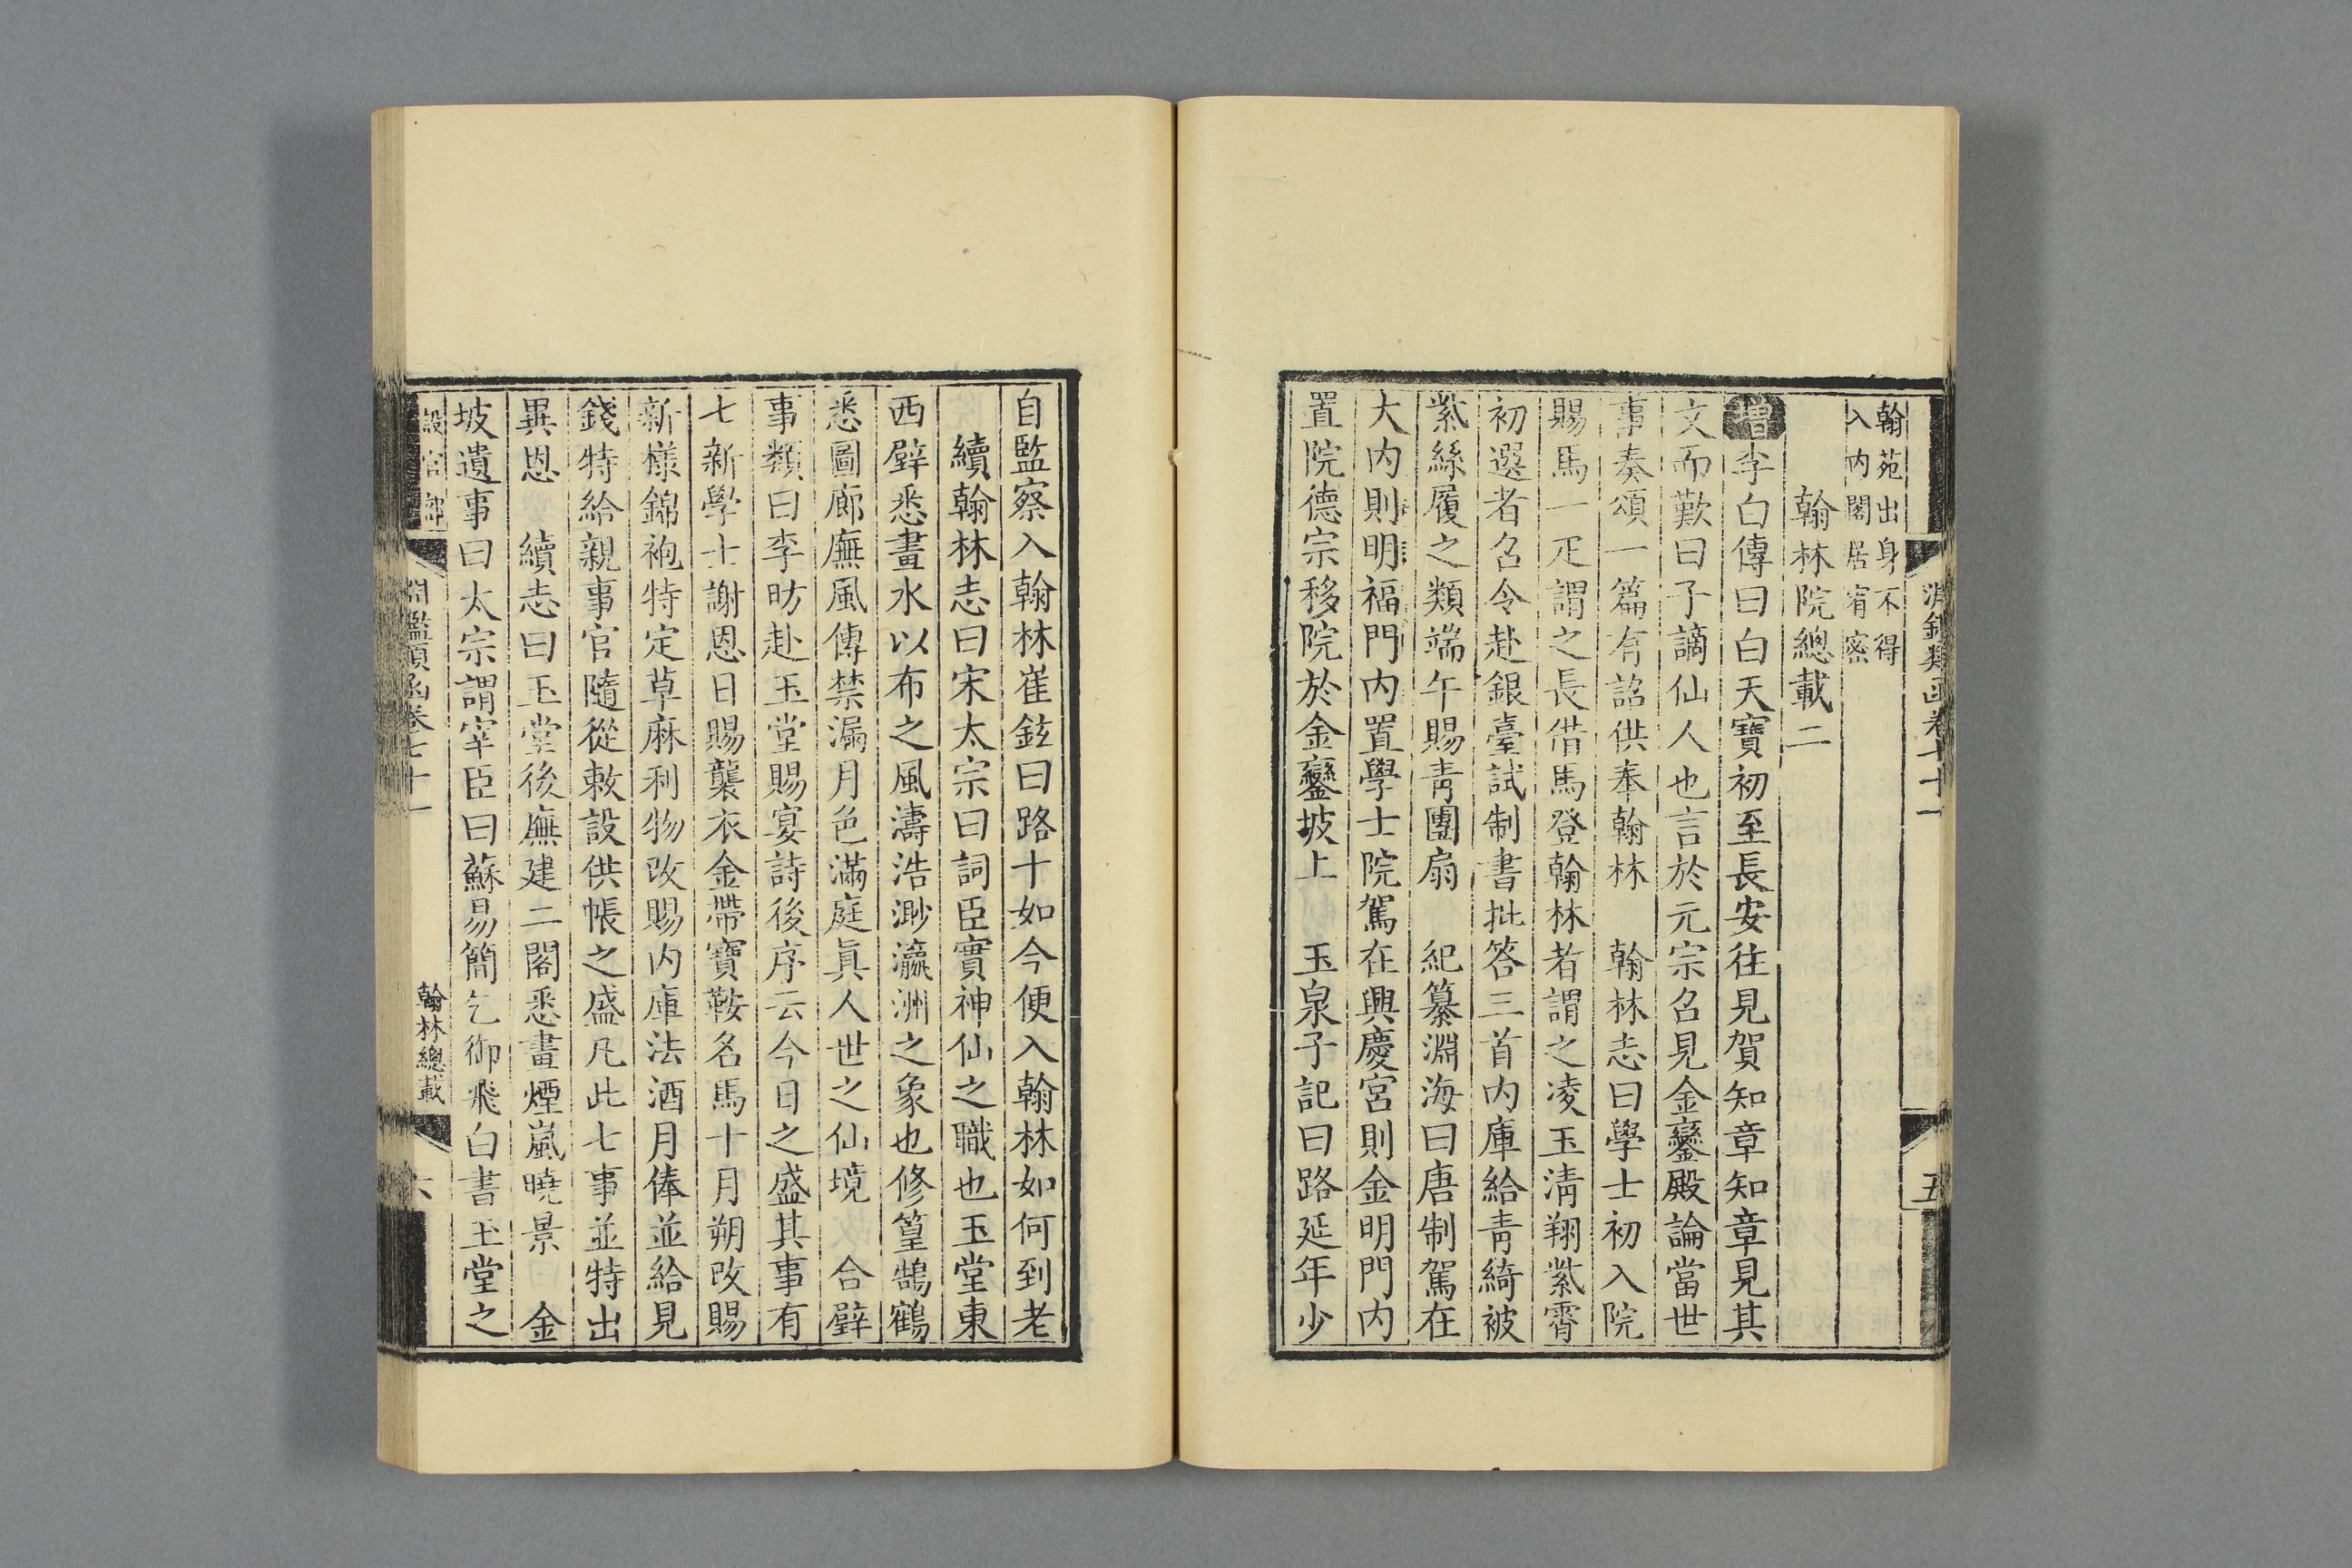 淵鑑類函卷七十一
五
翰苑出身不得
入內閣居宥密
翰林院總載二
增李白傳曰白天寶初至長安往見賀知章知章見其
文而歎曰子謫仙人也言於元宗召見金鑾殿論當世
事奏頌一篇有詔供奉翰林　翰林志曰學士初入院
賜馬一疋謂之長借馬登翰林者謂之凌玉清翔紫霄
初選者召令赴銀臺試制書批答三首內庫給青綺被
紫絲履之類端午賜青團扇　紀纂淵海曰唐制駕在
大內則明福門內置學士院駕在興慶宮則金明門內
置院德宗移院於金鑾坡上　玉泉子記曰路延年少
自監察入翰林崔鉉曰路十如今便入翰林如何到老
續翰林志曰宋太宗曰詞臣實神仙之職也玉堂東
西壁悉畫水以布之風濤浩渺瀛洲之象也修篁鵠鶴
悉圖廊廡風傳禁漏月色滿庭眞人世之仙境　合璧
事類曰李昉赴玉堂賜宴詩後序云今日之盛其事有
七新學士謝恩日賜襲衣金帶寶鞍名馬十月朔改賜
新樣錦袍特定草麻利物改賜內庫法酒月俸並給見
錢特給親事官隨從敕設供帳之盛凡此七事並特出
異恩　續志曰玉堂後廡建二閣悉畫煙嵐曉景　金
坡遺事曰太宗謂宰臣曰蘇易簡乞御飛白書玉堂之
設官部
淵鑑類函卷七十一
翰林總載
六